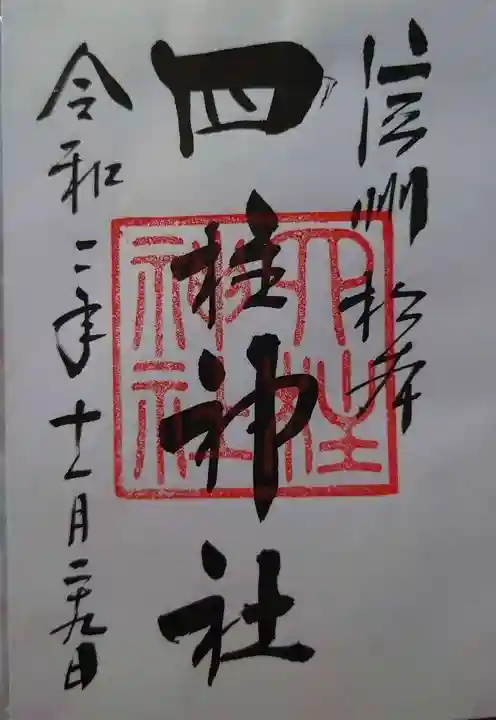 信州 松本
四柱神社
令和二年十一月二十九日
四柱神社